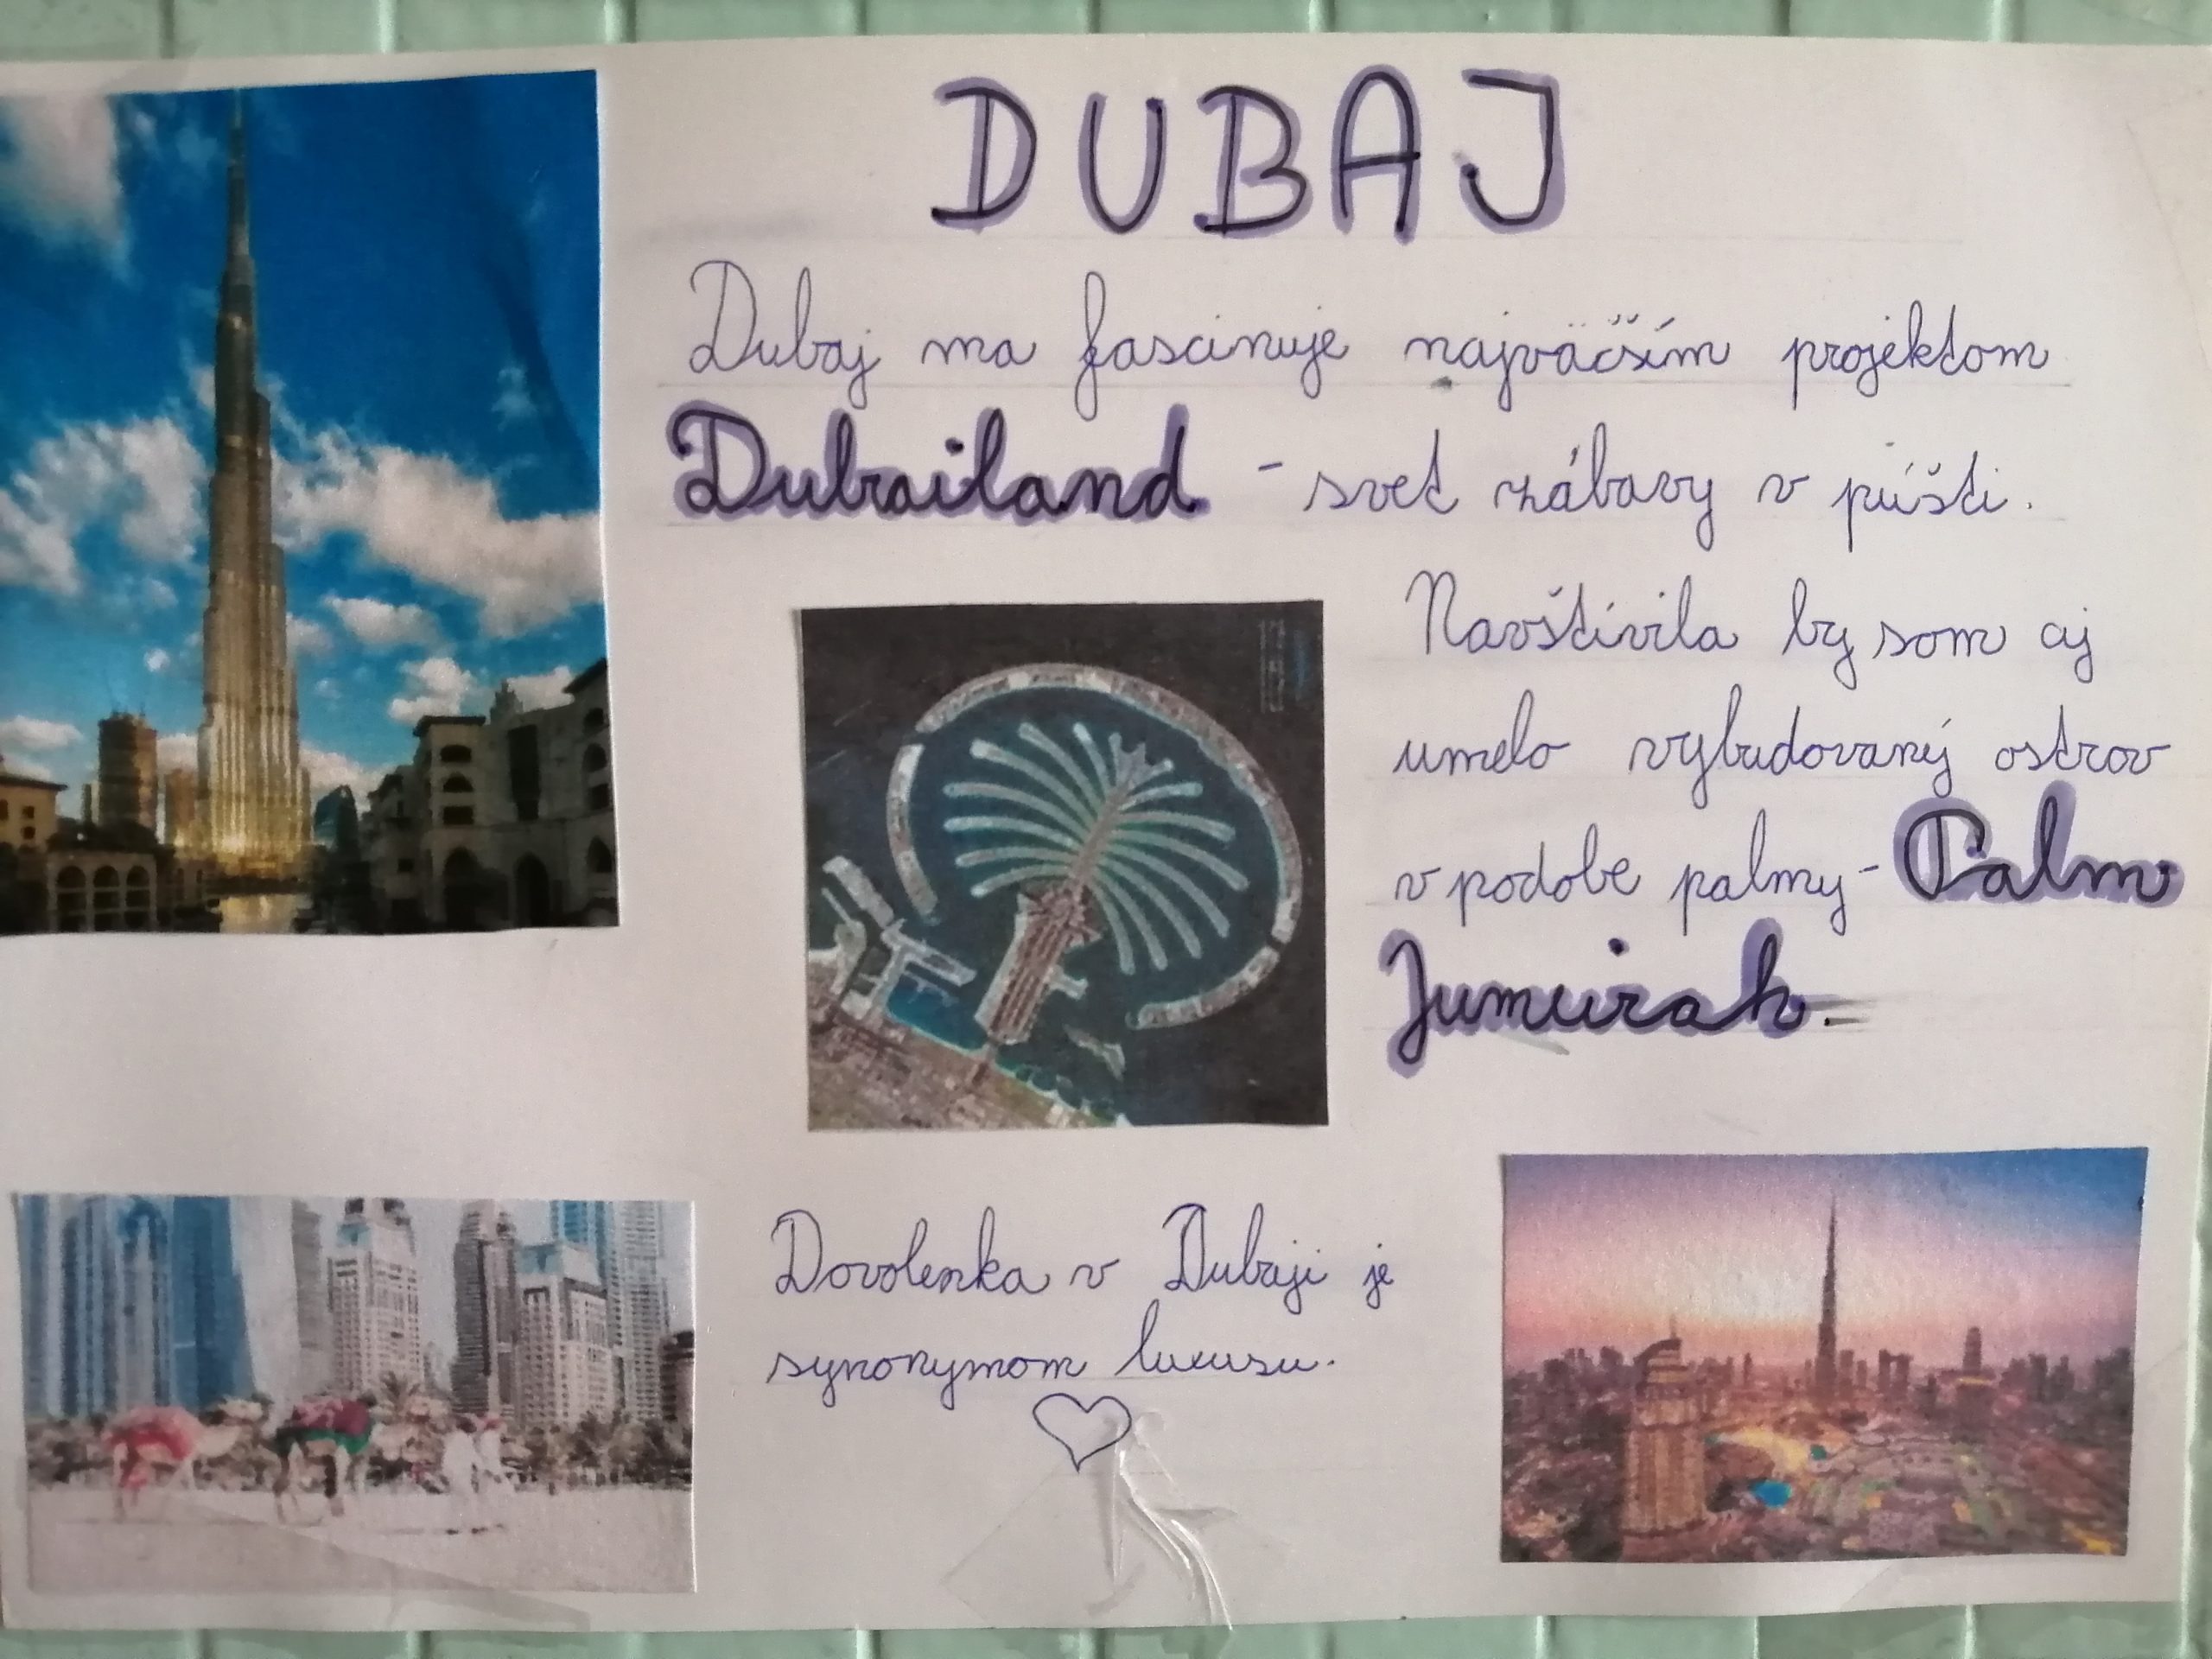 DUBAJ
Dubaj ma fascinuje najväčším projektom
Dubailand - svet zábavy v púšti.
Navštívila by som aj
umelo vybudovaný ostrov
v podobe palmy - Palm
Jumeirah.
Dovolenka v Dubaji je
synonymom luxusu.